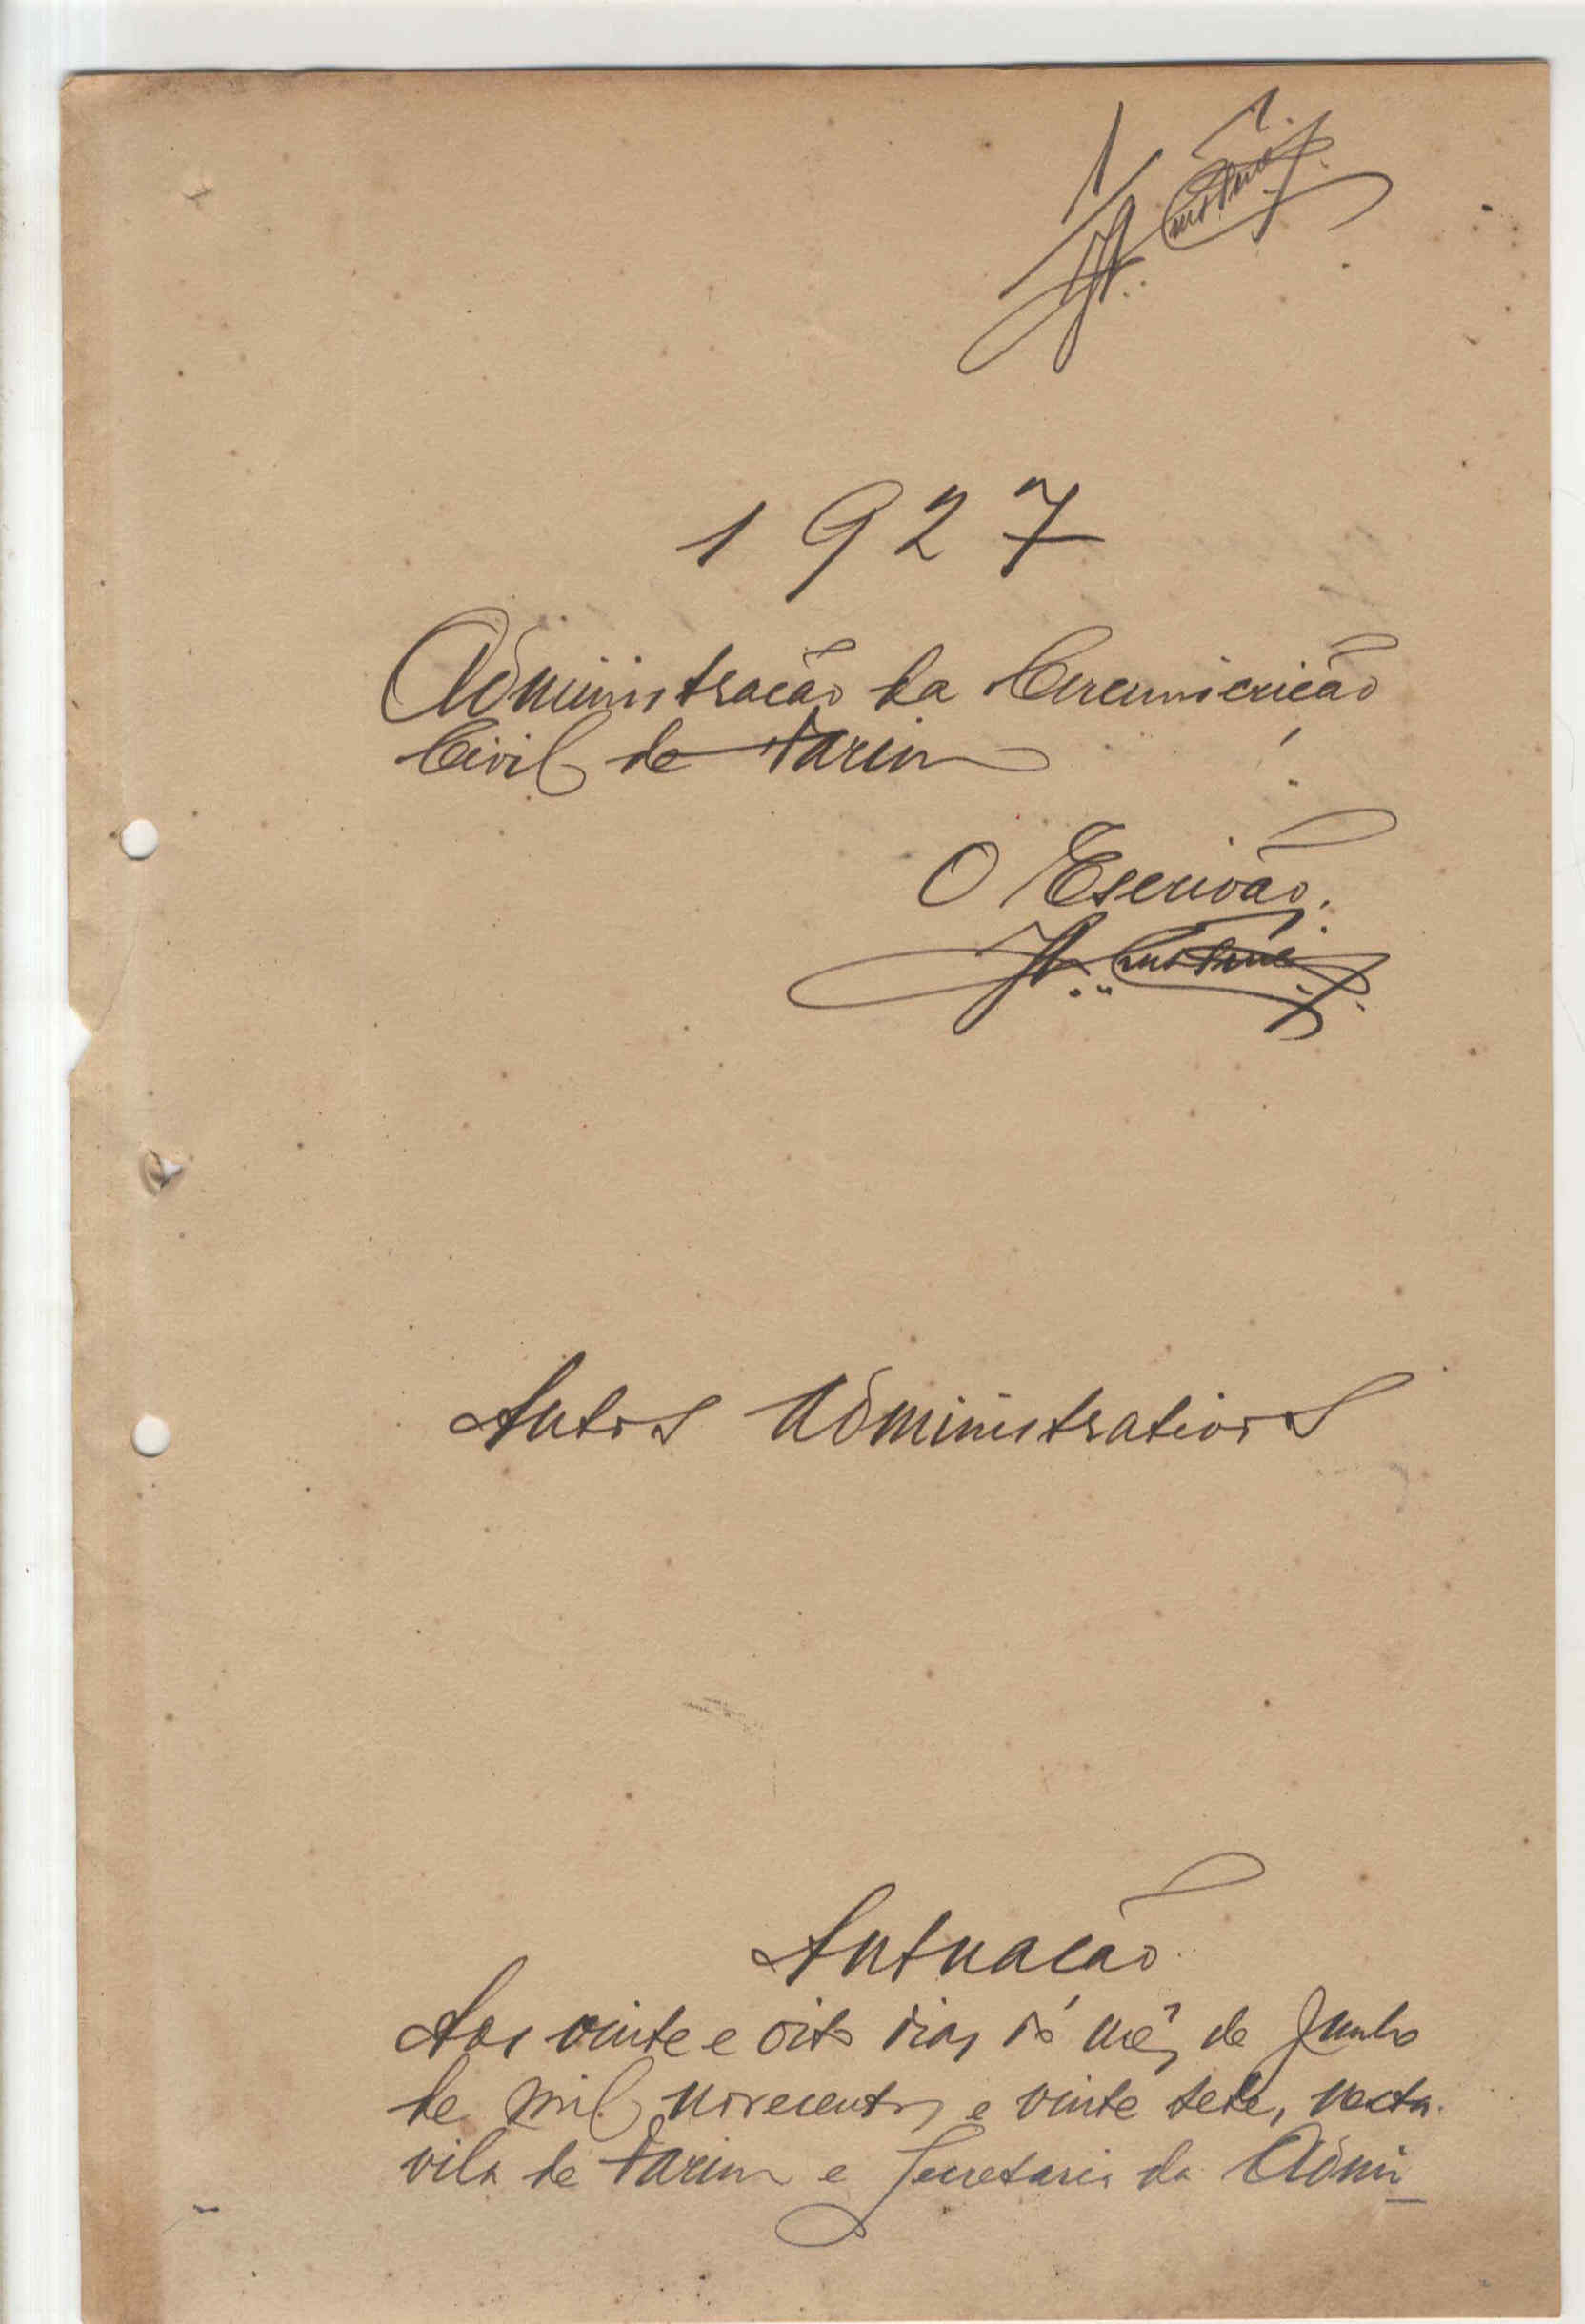 1
1927
Administração da Circunscrição
Civil de Farim
O Escrivão,
Autos Administrativos
Autuação
Aos vinte e oito dias do mês de Junho
de mil novecentos e vinte sete, nesta
vila de Farim e Secretaria da Admi-